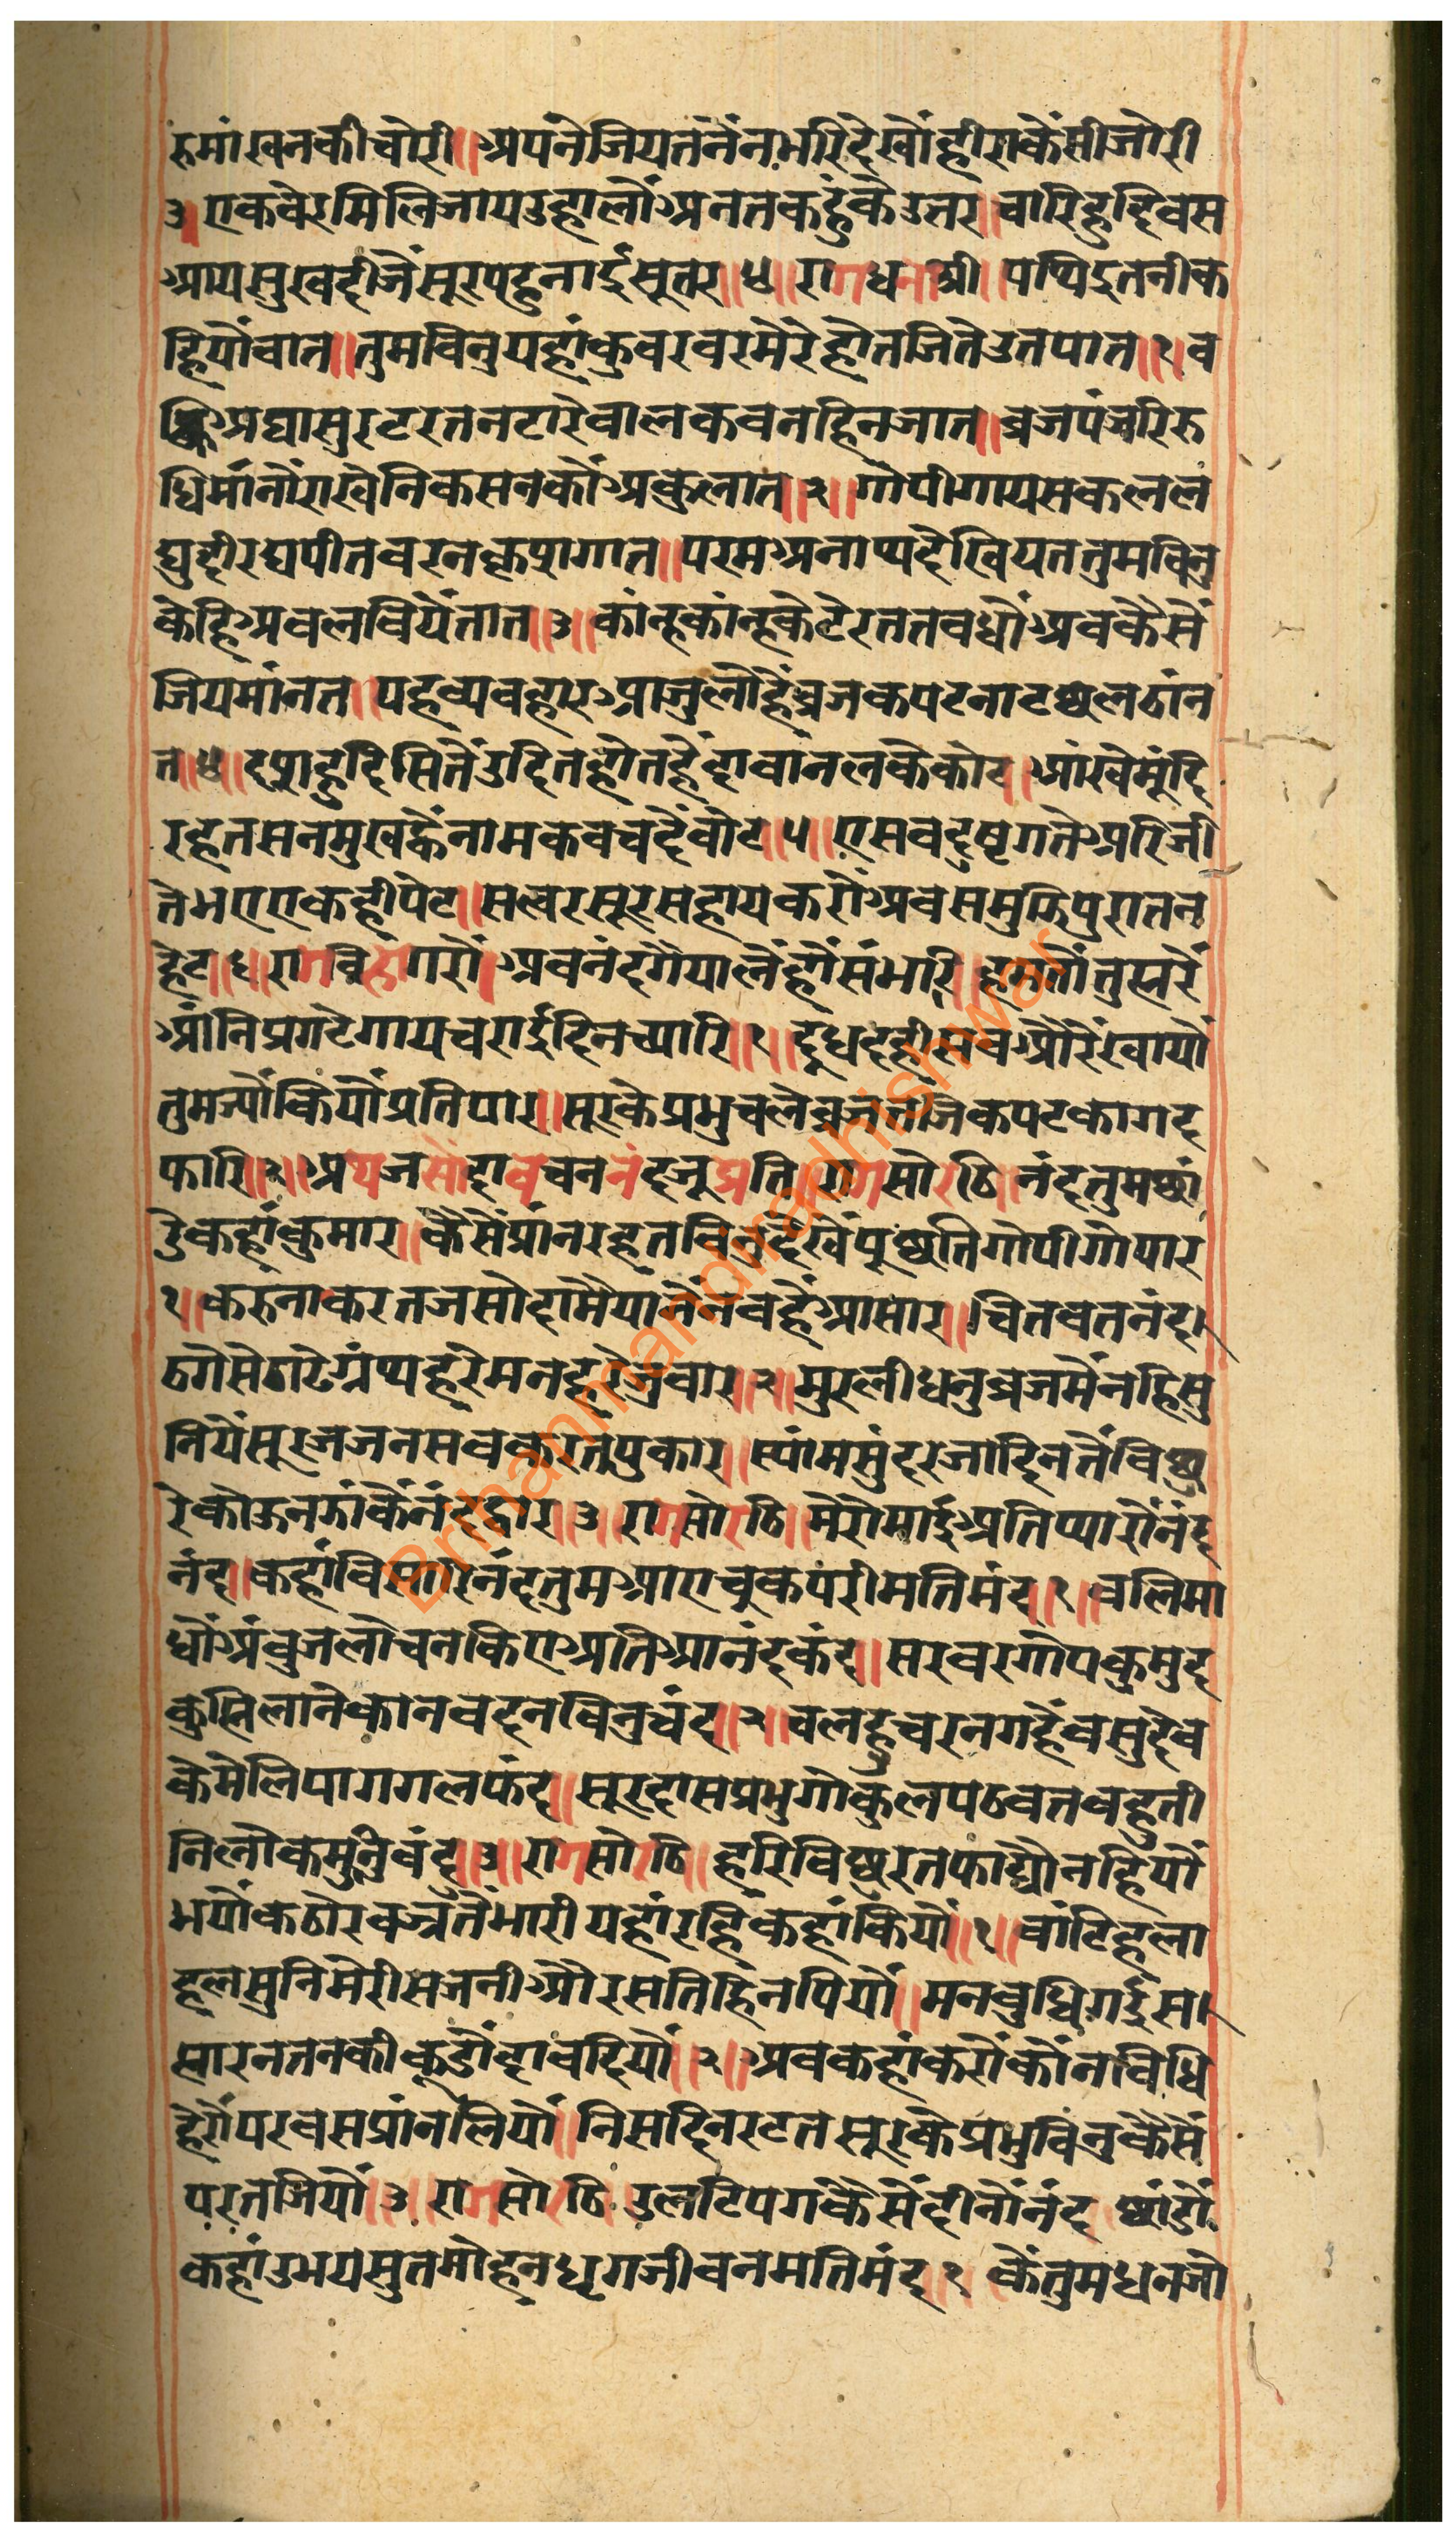 रुमांखनकीचोरी॥अपनेजियतनैंनभरिदेखोंहीराकेंसीजोरी
३॥एकवेरमिलिजायउहालौंअनतकहुंकेउतर॥चारिहुदिवस
आयसुखदीजैंसूरपहुनाईसूतर॥४॥रागधनाश्री॥पथिइतनीक
हियोंवात॥तुमविनुयहांकुवरवरमेरेहोतजितेउतपात॥१॥व
अघासुरटरतनटारेवालकवनहिनजात॥व्रजपंजरिरु
धिमांनौंराखेनिकसनकौंअकुलात॥२॥गोपीगायसकलल
घुदीरघपीतवरनकृशगात॥परमअनाथदेखियततुमविनु
केहिअवलवियैंतात॥३॥कांन्हकांन्हकेटेरततवधौंअवकैसें
जियमांनत॥यहव्यवहारआजुलौंहैंव्रजकपटनाटछलठांन
त॥४॥दशहुदिसितेंउदितहोतहैंदावानलकेकोट॥आंखेमुंदि
रहतसनमुखव्हैनामकवचदैंवोट॥५॥एसवदुष्टगतेअरिजी
तेभएएकहीपेट॥सत्वरसूरसहायकरौंअवसमुझिपुरातन
हेट॥६॥रागविहागरौ॥अवनंदगैयालैंहौंसंभारि॥हमतौंतुह्मरें
आंनिप्रगटेगायचराईदिनच्यारि॥१॥दूधदहीसवऔरैंखायों
तुमज्योंकियोंप्रतिपार॥सूरकेप्रभुचलेव्रजतजिकपटकागद
फारि॥२॥अथजसोदावचननंदजूप्रति॥रागसोरठि॥नंदतुमछां
डेकहांकुमार॥कैसैंप्रांनरहतविनुदेखेंपुछतिगोपीगोपार
१॥करुनाकरतजसोदामैयांनैंनवहैंआसार॥चितवतनंद
ठगेसेठाढेग्रंथहरेमनहरेजुवार॥२॥मुरलीधनुव्रजमैंनहिसु
नियेंसूरजजनसवकरतपुकार॥स्यांमसुंदरजादिनतेंविछु
रेकोऊनझांकैंनंदद्वार॥३॥रागसोरठि॥मेरोमाईअतिप्यारोंनंद
नंद॥कहांविसारिनंदतुमआएचुकपरीमतिमंद॥१॥वलिमा
धौंअंबुजलोचनकिएअतिआनंदकंद॥सरवरगोपकुमुद
कुह्मिलानेकानवदनविनुचंद॥२॥चलहुचरनगहैंवसुदेव
केमेलिपागगलफंद॥सूरदासप्रभुगोकुलपठवतवहुती
निलोकमुनिवंद॥३॥रागसोरठि॥हरिविछुरतफाट्यौनहियों
भयोंकठोरवज्रतेंभारीयहांरहिकहांकियों॥१॥वांटिहला
हलसुनिमेरीसजनीऔरसतिहिंनपियों॥मनबुधिगईस
सारनतनकीकूडौंदावदियों॥२॥अवकहांकरौंकौंनविधि
हेरोंपरवसप्रांनलियों॥निसदिनरटतसूरकेप्रभुविंनुकैसें
परतजियों॥३॥रागसोरठि॥उलटिपगकैसेंदीनोंनंद॥छांडौं
कहांउभयसुतमोहनधृगजीवनमतिमंद॥१॥कैंतुमधनजो